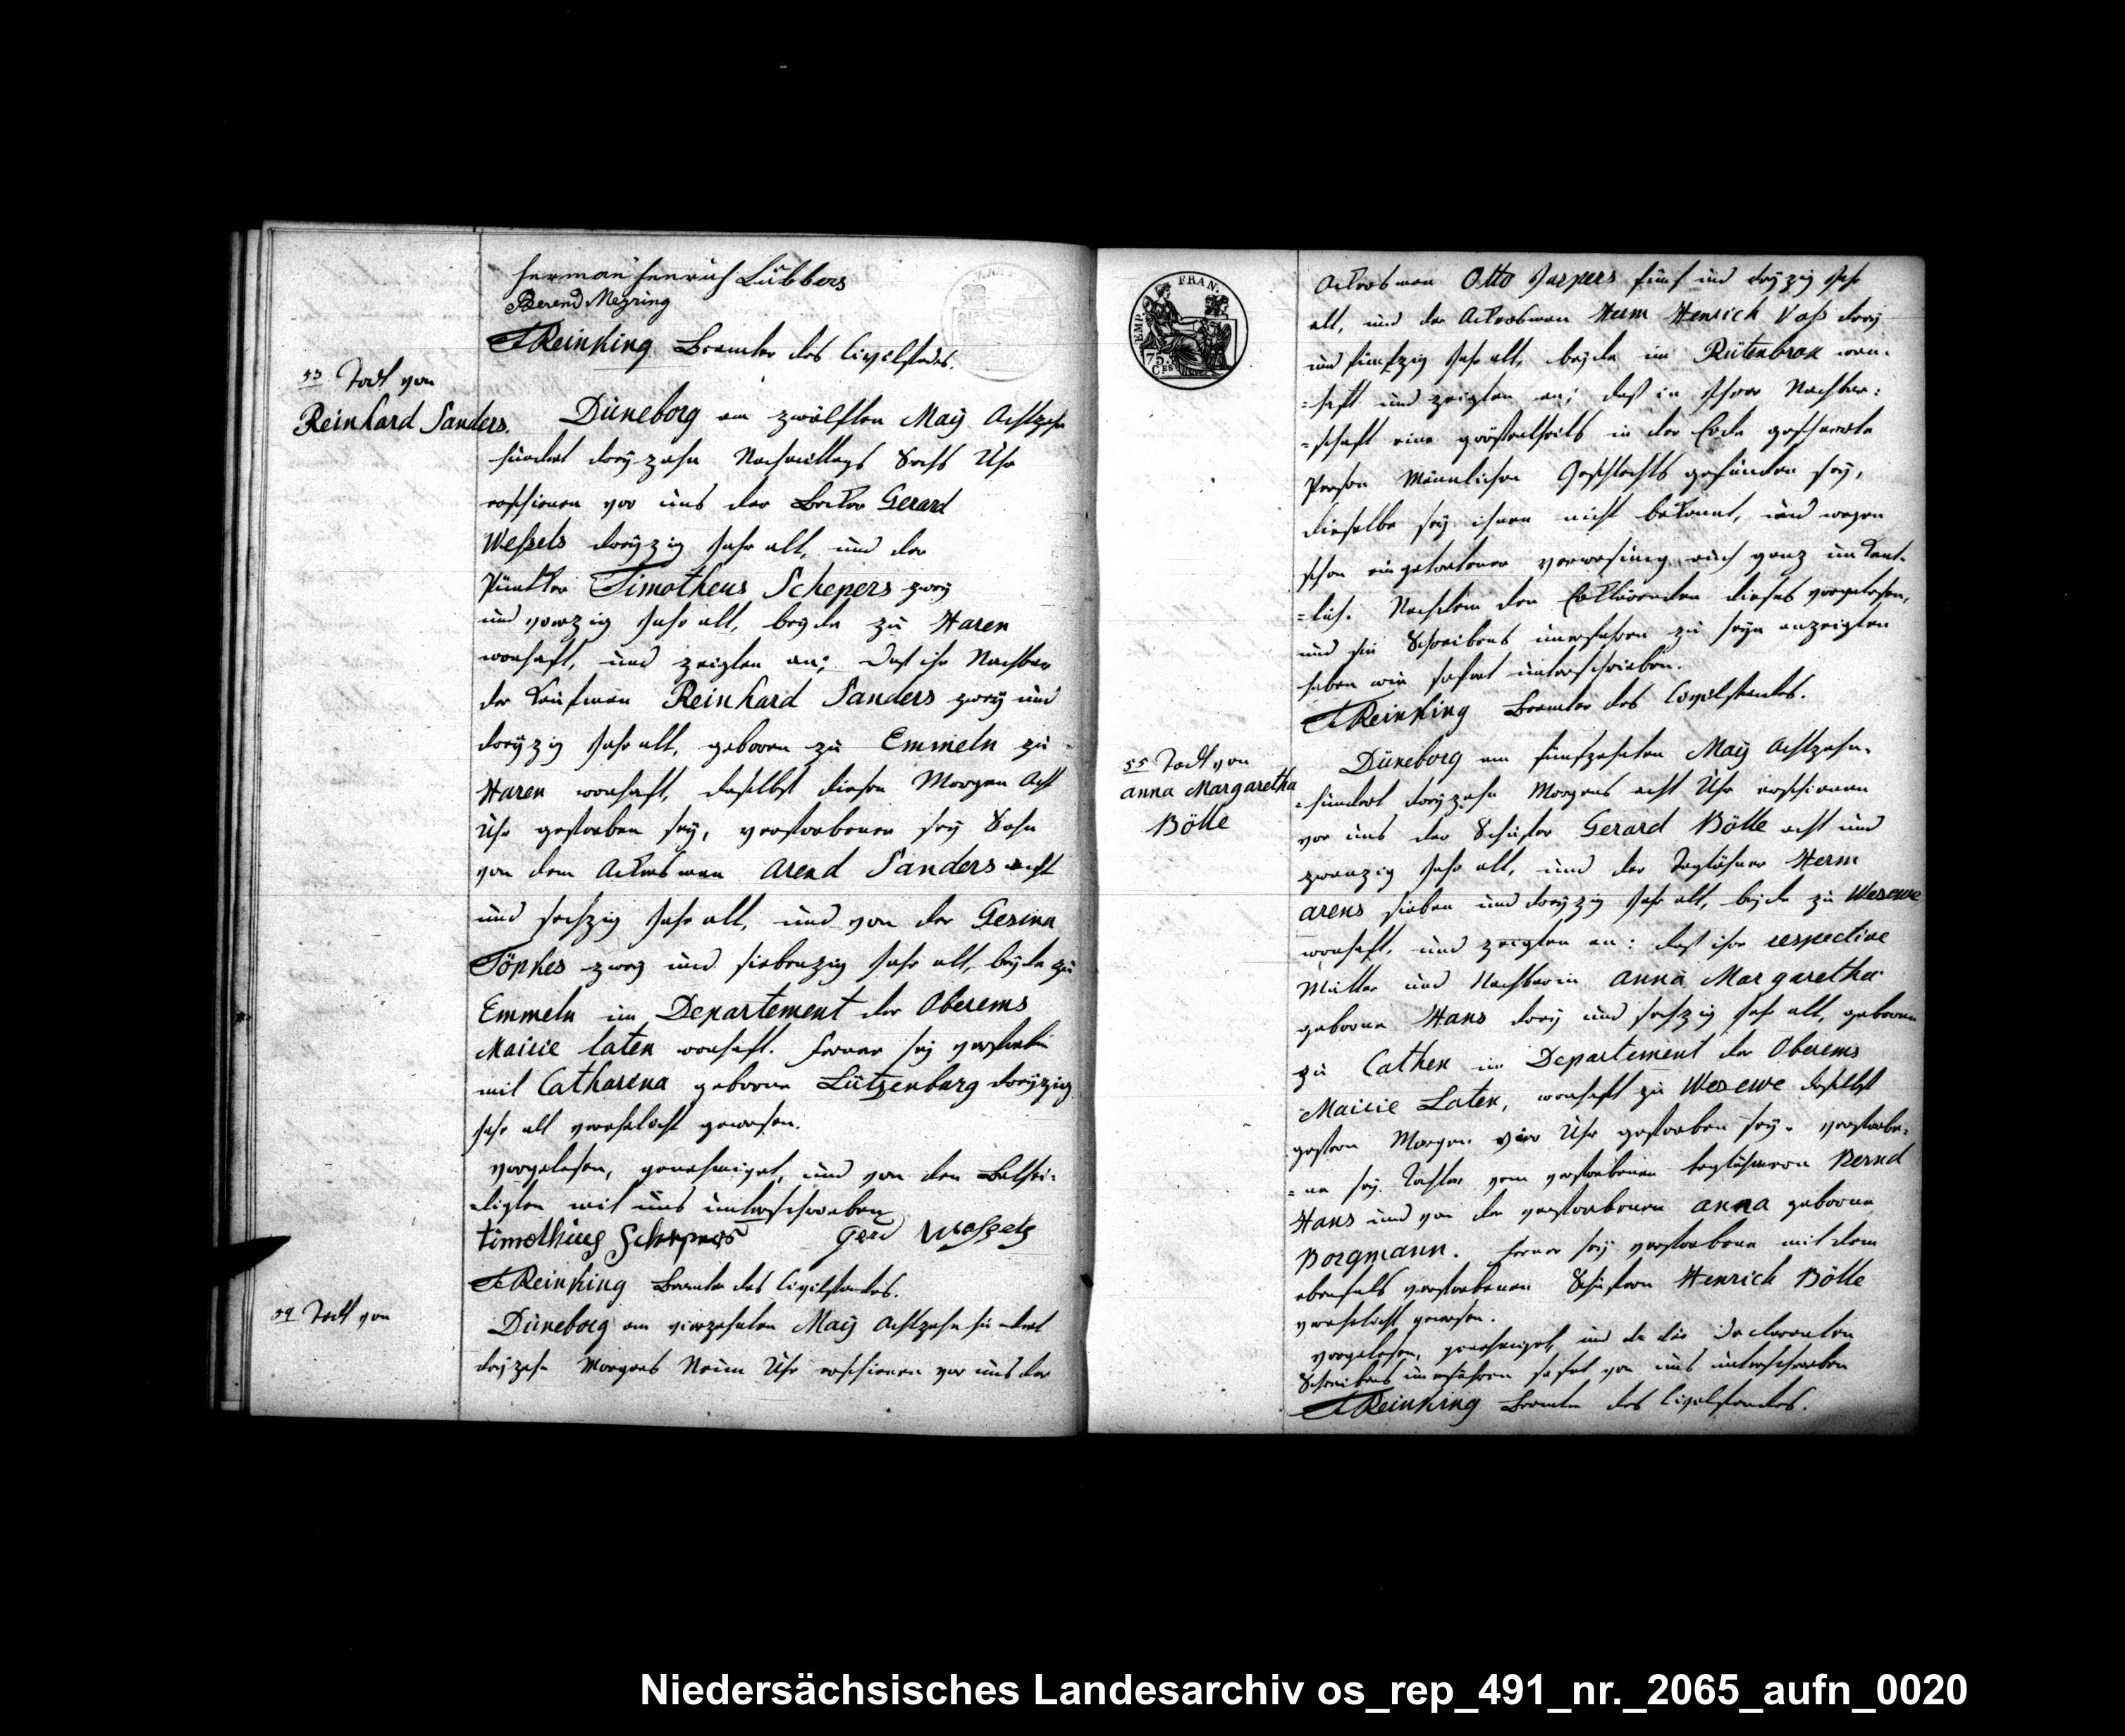 herman henrich Lübbers
Berend Meyring
Reinking Beamter des Civilstandes.
53 Todt von
Reinhard Sanders.
Düneborg am zwölften May Achtzehn
hundert dreyzehn Nachmittags Sechs Uhr
erschienen vor uns der Becker Gerard
Weßels dreyzig Jahr alt, und der
Timotheus Schepers zwey
und vierzig Jahr alt, beyde zu Haren
wonhaft, und zeigten an; daß ihr Nachbar
der Kaufman Reinhard Sanders zwey und
dreyzig Jahr alt, geboren zu Emmeln zu
Haren wonhaft, daselbst diesen Morgen Acht
Uhr gestorben sey, verstorbener sey Sohn
von dem Ackersman Arend Sanders acht
und sechzig Jahr alt, und von der Gesina
Töpkes zwey und siebenzig Jahr alt, beyde zu
Emmeln im Departement der Oberems
Mairie Laten wonhaft. Ferner sey verstorbn
mit Catharina geborne Lützenburg dreyzig
Jahr alt verehelicht gewesen.
vorgelesen, genehmiget, und von den Bethei-
-ligten mit uns unterschrieben
timothüeg Schepers Gerd Weßels
Reinking Beamter des Civilstandes.
54 Todt von
Düneborg am vierzehnten May Achtzehn hundert
dreyzehn Morgens Neun Uhr erschienen vor uns der
EMP. FRAN.
75. CES
Ackersman Otto Jaspers fünf und dreyzig Jahr
alt, und der Ackersman Herm Henrich Voß drey
und fünfzig Jahr alt, beyde im Rütenbrok won-
-haft und zeigten an; daß in ihrer Nachbar-
-schaft eine größtentheils in der Erde gescharrte
Person Männlichen Geschlechts gefunden sey,
dieselbe sey ihnen nicht bekannt, und wegen
schon eingetretener verwesung auch ganz unkent-
-lich. Nachdem den Erklärenden dieses vorgelesen,
und sie Schreibens unerfahren zu seyn anzeigten
haben wir sofort unterschrieben.
Reinking Beamter des Civilstandes.
55 Todt von
Anna Margaretha
Bölle
Düneborg am fünfzehnten May Achtzehn-
-hundert dreyzehn Morgens acht Uhr erschienen
vor uns der Schuster Gerard Bölle acht und
zwanzig Jahr alt, und der Taglöhner Herm
Arens sieben und dreyzig Jahr alt, beyde zu Wesewe
wonhaft, und zeigten an: daß ihre respective
Mutter und Nachbarin Anna Margaretha
geborne Hans drey und sechzig Jahr alt, geboren
zu Cathen im Departement der Oberems
Mairie Laten, wonhaft zu Wesewe daselbst
gestern Morgen vier Uhr gestorben sey. verstorbe-
-ne sey Tochter vom verstorbenen taglöhneren Bernd
Hans und von der verstorbenen Anna geborne
Borgmann. Ferner sey verstorbene mit dem
ebenfals verstorbenen Schustern Henrich Bölle
verehelicht gewesen.
vorgelesen, genehmiget, und da die Declaranten
Schreibens unerfahren sofort von uns unterschrieben
Reinking Beamter des Civilstandes.
Niedersächsisches Landesarchiv os_rep_491_nr._2065_aufn_0020